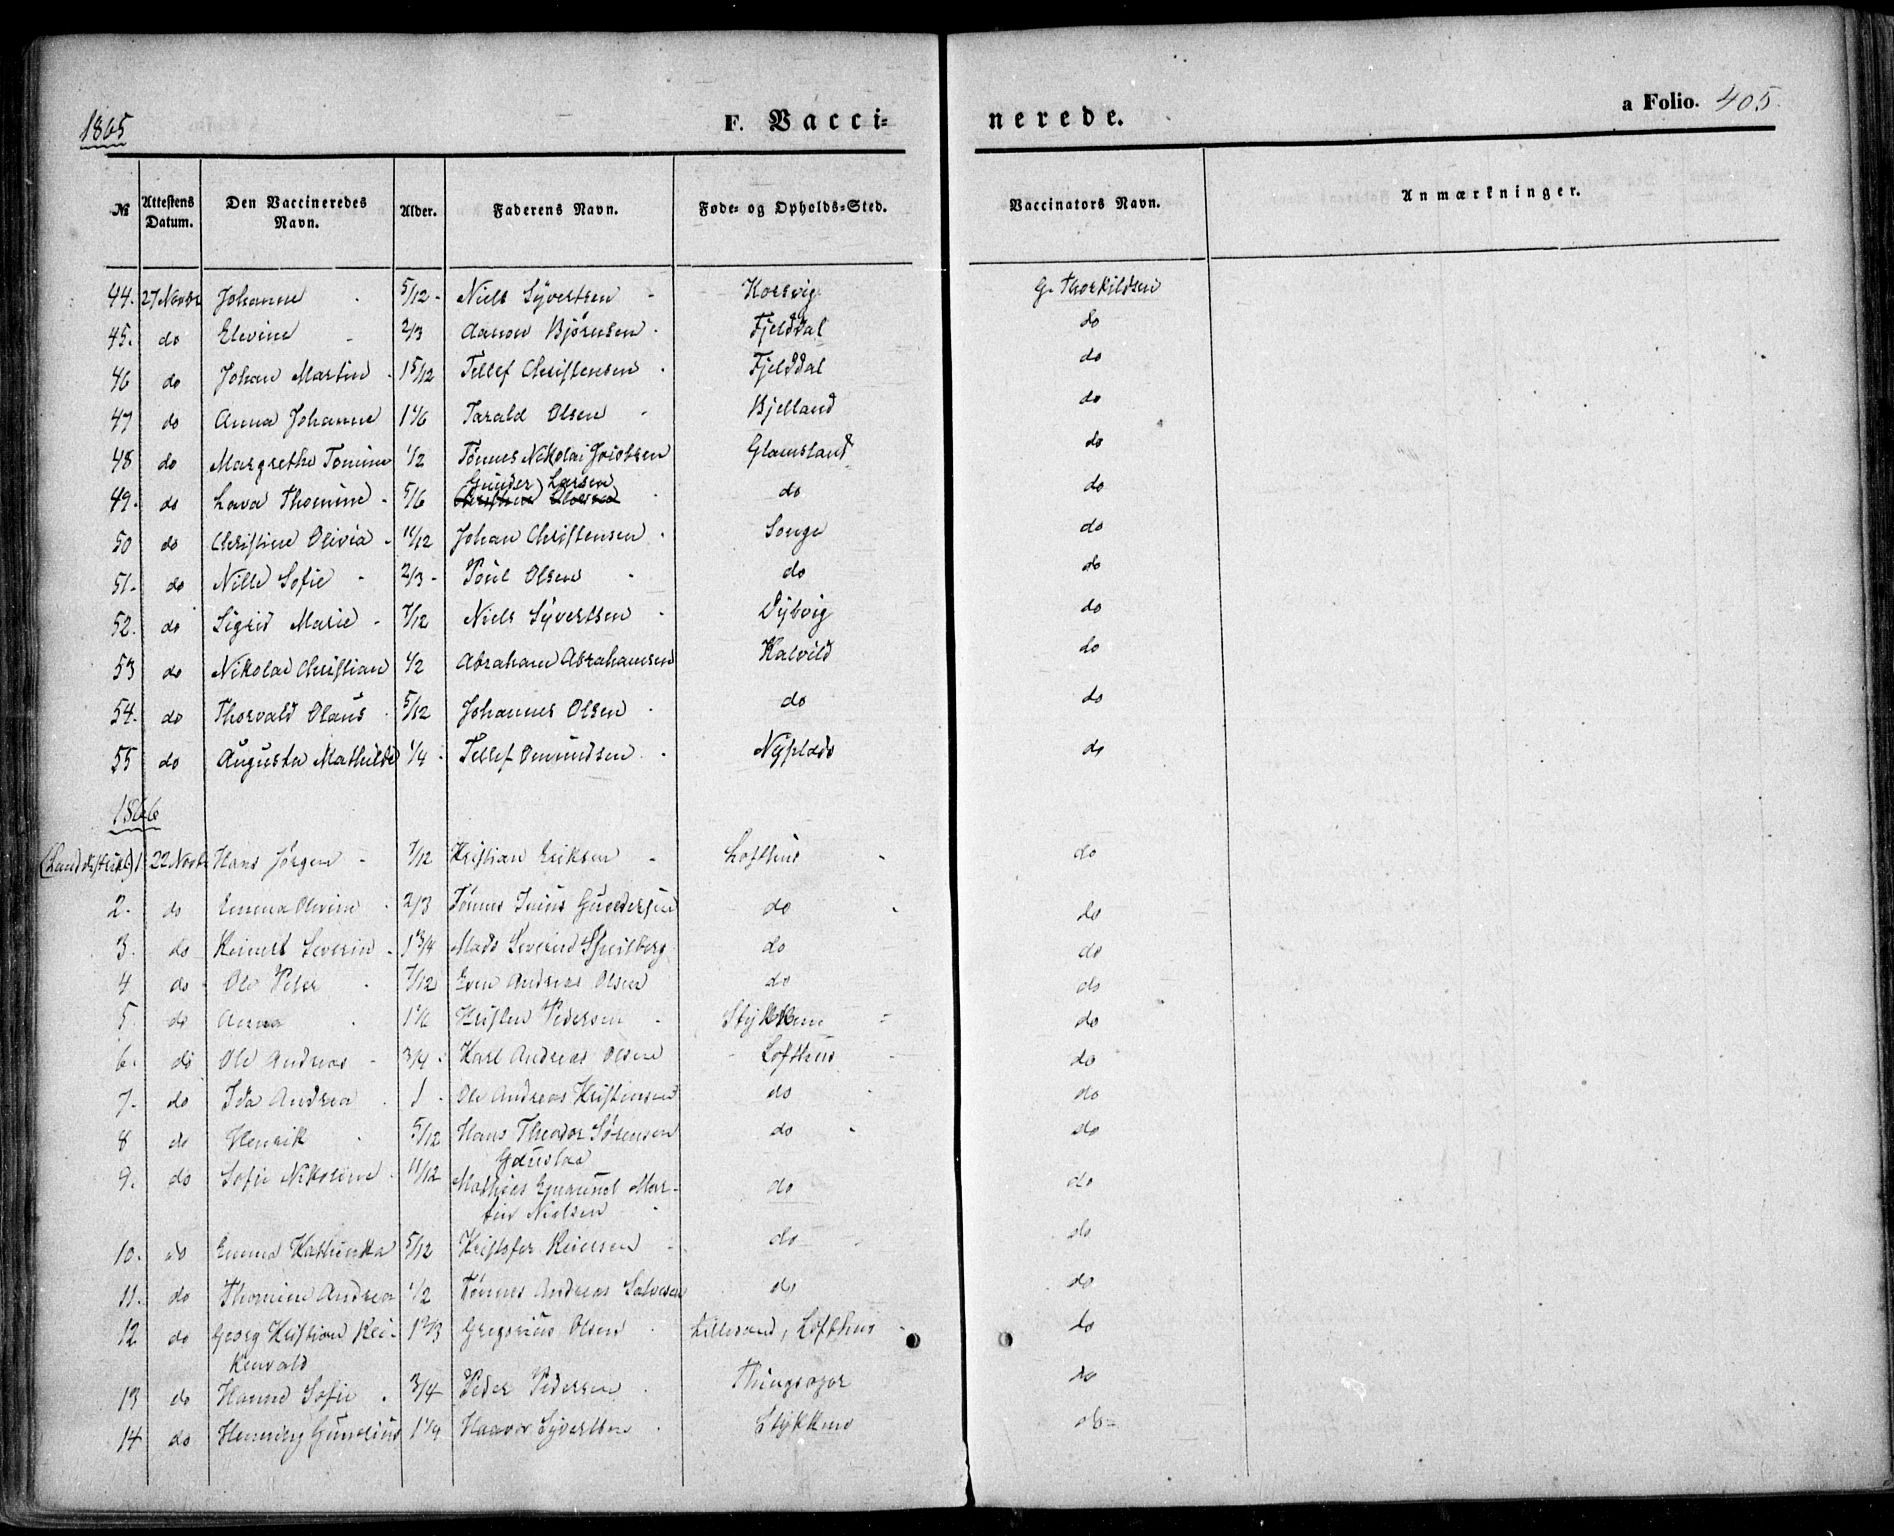 1865
F. Vacci=
nerede.
a Folio. 405.
№ Attestens Datum. Den Vaccineredes Navn. Alder. Faderens Navn. Føde= og Opholds=Sted. Vaccinators Navn. Anmærkninger.
44. 27 Novbr Johanne 5/12 Niels Syvertsen Korsvig G. Thorkildsen
45. do Elevine 2/3 Aanon Bjørnsen Fjelddal do
46 do Johan Martin 1 5/12 Tellef Christensen Fjelddal do
47 do Anna Johanne 1 1/6 Tarald Olsen Bjelland do
48 do Margrethe Tomine 1/2 Tønnes Nikolai Jacobsen Glamsland do
Gunder Larsen
49. do Lava Thomine 5/6 do do
50 do Christine Olivia 11/12 Johan Christensen Songe do
51. do Nille Sofie 2/3 Poul Olsen do do
52. do Sigrid Marie 7/12 Niels Syvertsen Dybvig do
53 do Nikolai Christian 1/2 Abraham Abrahamsen Kalvild do
54. do Thorvald Olaus 5/12 Johannes Olsen do do
55 do Augusta Mathilde 1/4 Tellef Omundsen Nyplads do
1866
(Landdistrikt) 1. 22 Novb. Hans Jørgen 7/12 Kristian Eriksen Lofthus do
2. do Emma Olivine 2/3 Tønnes Gundersen do do
3. do Reinert Severin 1 3/4 Mads Severin do do
4 do Ole Peter 7/12 Even Andreas Olsen do do
5 do Anna 1 1/6 Kristen Pedersen Stykkene do
6. do Ole Andreas 3/4 Karl Andreas Olsen Lofthus do
7. do Ida Andrea 1 Ole Andreas Kristensen do do
8 do Henrik 5/12 Hans Theodor Sørensen do do
Gauslaa
9. do Sofie Nikoline 11/12 Mathias Mar-
tin Nielsen do do
10. do Emma Kathinka 5/12 Kristofer Reiersen do do
11. do Thomine Andrea 1/2 Tønnes Andreas Salvesen do do
12 do Georg Kristian Rei- 1 2/3 Gregorius Olsen Lillesand, Lofthus do
kenvald
13 do Hanne Sofie 3/4 Peder Pedersen Thingsager do
14 do Henninng Gunelius 1 1/4 Haavor Syvertsen Stykkene do